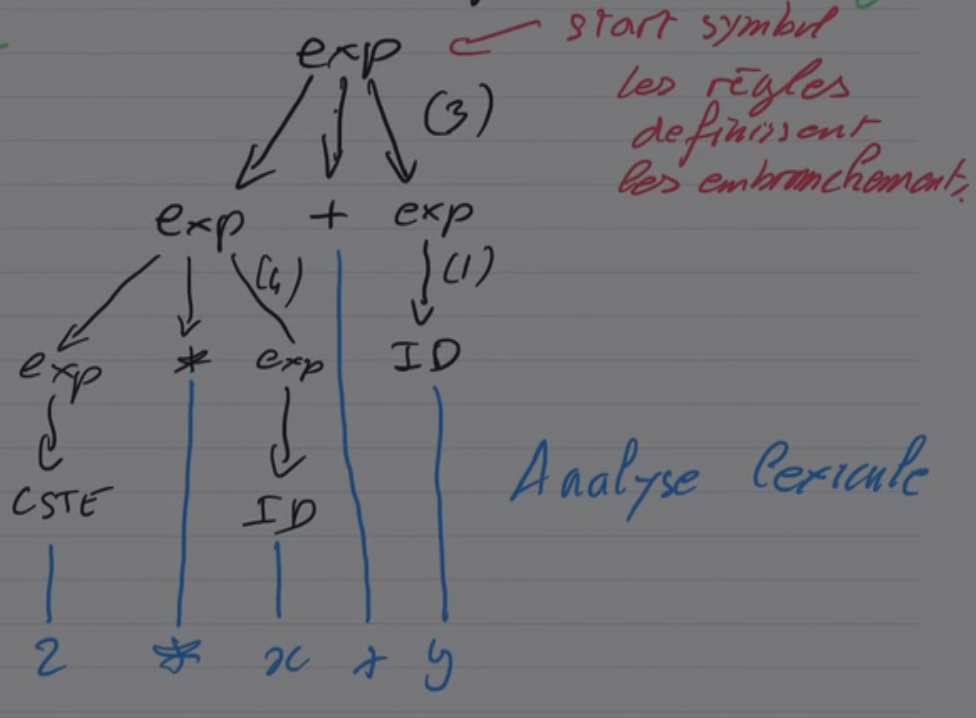 exp
start symbol
les règles
definissent
les embranchements
(3)
exp + exp
(4)
(1)
exp * exp
ID
CSTE
ID
Analyse lexicale
2 * x + y